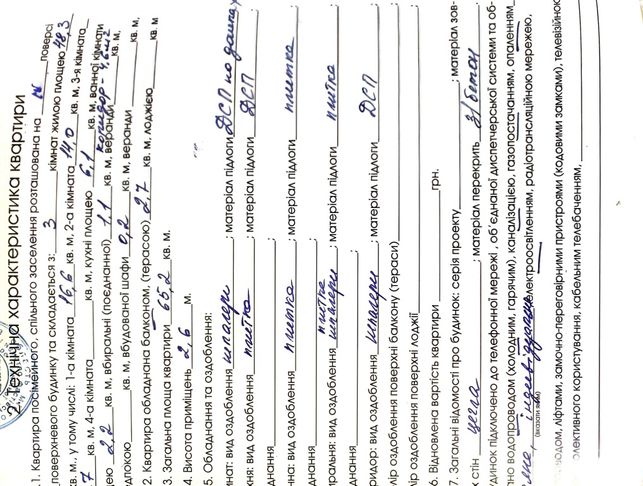 2. Технічна характеристика квартири
.1. Квартира посімейного, спільного заселення розташована на поверсі
поверхового будинку та складається з: 3 кімнат жилою площею 48,3
кв. м., у тому числі: 1-а кімната 16,6 кв. м. 2-а кімната 14,0 кв. м. 3-я кімната
7 кв. м. 4-а кімната кв. м. кухні площею 6,1 кв. м. ванної кімнати
цею 2,2 кв. м. вбиральні (поєднанної) 1,1 кв. м, веранди коридор - 4,6 м2 кв. м.
дпокою кв. м, вбудованої шафи 0,2 кв. м, веранди кв. м,
2. Квартира обладнана балконом, (терасою) 2,7 кв. м, лоджією кв. м
3. Загальна площа квартири 65,2 кв. м.
4. Висота приміщень 2,6 м.
5. Обладнання та оздоблення:
нат: вид оздоблення шпалери ; матеріал підлоги ДСП по
днання
хня: вид оздоблення плитка ; матеріал підлоги ДСП
днання
нна: вид оздоблення плитка ; матеріал підлоги плитка
днання
плитка
ральня: вид оздоблення шпалери ; матеріал підлоги плитка
днання
ридор: вид оздоблення шпалери ; матеріал підлоги ДСП
лір оздоблення поверхні балкону (тераси)
лір оздоблення поверхні лоджії
6. Відновлена вартість квартири грн.
7. Загальні відомості про будинок: серія проекту ; матеріал зов-
х стін цегла ; матеріал перекрить з/бетон
удинок підключено до телефонної мережі , об'єднаної диспетчерської системи та об-
ано водопроводом (холодним, гарячим), каналізацією, газопостачанням, опаленням
індивідуальне електроосвітленням, радіотрансляційною мережею,
(вказати яким)
водом, ліфтами, замочно-переговорними пристроями (кодовими замками), телевізійною
олективного користування, кабельним телебаченням,